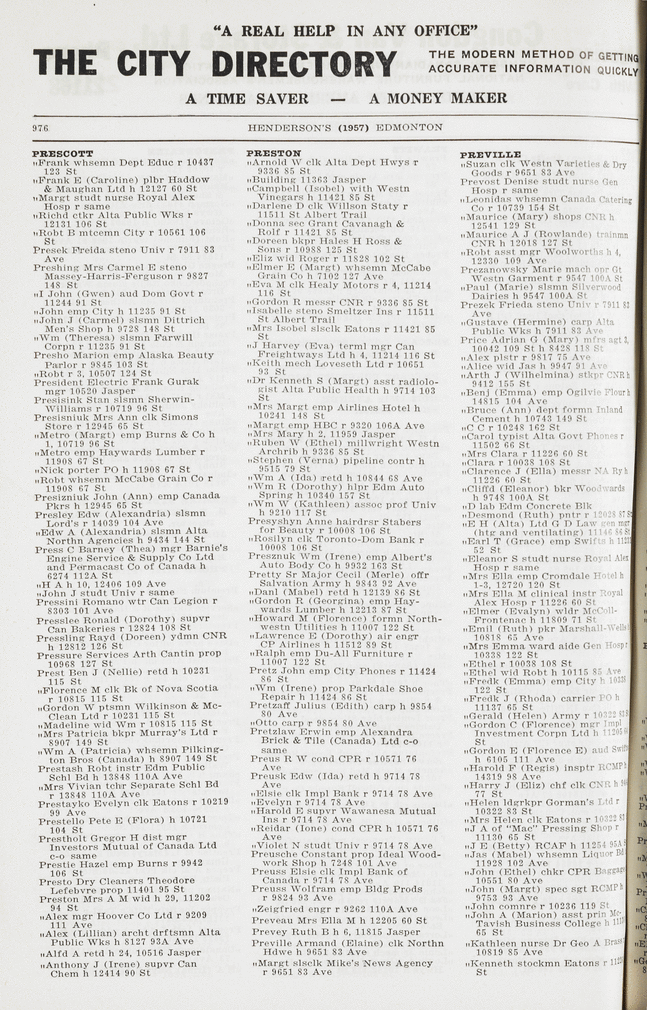 "A REAL HELP IN ANY OFFICE"
THE CITY DIRECTORY
THE MODERN METHOD OF GETTING
ACCURATE INFORMATION QUICKLY
A TIME SAVER — A MONEY MAKER
976
HENDERSON'S (1957) EDMONTON
PRESCOTT
„Frank whsemn Dept Educ r 10437
123 St
„Frank E (Caroline) plbr Haddow
& Maughan Ltd h 12127 60 St
„Margt studt nurse Royal Alex
Hosp r same
„Richd ctkr Alta Public Wks r
12131 106 St
„Robt B mtcemn City r 10561 106
St
Presek Freida steno Univ r 7911 83
Ave
Preshing Mrs Carmel E steno
Massey-Harris-Ferguson r 9827
148 St
„I John (Gwen) aud Dom Govt r
11244 91 St
„John emp City h 11235 91 St
„John J (Carmel) slsmn Dittrich
Men's Shop h 9728 148 St
„Wm (Theresa) slsmn Farwill
Corpn r 11235 91 St
Presho Marion emp Alaska Beauty
Parlor r 9845 103 St
„Robt r 3, 10507 124 St
President Electric Frank Gurak
mgr 10520 Jasper
Presisink Stan slsmn Sherwin-
Williams r 10719 96 St
Presisniuk Mrs Ann clk Simons
Store r 12945 65 St
„Metro (Margt) emp Burns & Co h
1, 10719 96 St
„Metro emp Haywards Lumber r
11908 67 St
„Nick porter PO h 11908 67 St
„Robt whsemn McCabe Grain Co r
11908 67 St
Presizniuk John (Ann) emp Canada
Pkrs h 12945 65 St
Presley Edw (Alexandria) slsmn
Lord's r 14039 104 Ave
„Edw A (Alexandria) slsmn Alta
Northn Agencies h 9434 144 St
Press C Barney (Thea) mgr Barnie's
Engine Service & Supply Co Ltd
and Permacast Co of Canada h
6274 112A St
„H A h 10, 12406 109 Ave
„John J studt Univ r same
Pressini Romano wtr Can Legion r
8303 101 Ave
Presslee Ronald (Dorothy) supvr
Can Bakeries r 12824 108 St
Pressling Rayd (Doreen) ydmn CNR
h 12812 126 St
Pressure Services Arth Cantin prop
10968 127 St
Prest Ben J (Nellie) retd h 10231
115 St
„Florence M clk Bk of Nova Scotia
r 10815 115 St
„Gordon W ptsmn Wilkinson & Mc-
Clean Ltd r 10231 115 St
„Madeline wid Wm r 10815 115 St
„Mrs Patricia bkpr Murray's Ltd r
8907 149 St
„Wm A (Patricia) whsemn Pilking-
ton Bros (Canada) h 8907 149 St
Prestash Robt instr Edm Public
Schl Bd h 13848 110A Ave
„Mrs Vivian tchr Separate Schl Bd
r 13848 110A Ave
Prestayko Evelyn clk Eatons r 10219
99 Ave
Prestello Pete E (Flora) h 10721
104 St
Prestholt Gregor H dist mgr
Investors Mutual of Canada Ltd
c-o same
Prestie Hazel emp Burns r 9942
106 St
Presto Dry Cleaners Theodore
Lefebvre prop 11401 95 St
Preston Mrs A M wid h 29, 11202
94 St
„Alex mgr Hoover Co Ltd r 9209
111 Ave
„Alex (Lillian) archt drftsmn Alta
Public Wks h 8127 93A Ave
„Alfd A retd h 24, 10516 Jasper
„Anthony J (Irene) supvr Can
Chem h 12414 90 St
PRESTON
„Arnold W clk Alta Dept Hwys r
9336 85 St
„Building 11363 Jasper
„Campbell (Isobel) with Westn
Vinegars h 11421 85 St
„Darlene D clk Willson Staty r
11511 St Albert Trail
„Donna sec Grant Cavanagh &
Rolf r 11421 85 St
„Doreen bkpr Hales H Ross &
Sons r 10988 125 St
„Eliz wid Roger r 11828 102 St
„Elmer E (Margt) whsemn McCabe
Grain Co h 7102 127 Ave
„Eva M clk Healy Motors r 4, 11214
116 St
„Gordon R messr CNR r 9336 85 St
„Isabelle steno Smeltzer Ins r 11511
St Albert Trail
„Mrs Isobel slsclk Eatons r 11421 85
St
„J Harvey (Eva) terml mgr Can
Freightways Ltd h 4, 11214 116 St
„Keith mech Loveseth Ltd r 10651
93 St
„Dr Kenneth S (Margt) asst radiolo-
gist Alta Public Health h 9714 103
St
„Mrs Margt emp Airlines Hotel h
10241 148 St
„Margt emp HBC r 9320 106A Ave
„Mrs Mary h 2, 11959 Jasper
„Ruben (Ethel) millwright Westn
Archrib h 9336 85 St
„Stephen (Verna) pipeline contr h
9515 79 St
„Wm A (Ida) retd h 10844 68 Ave
„Wm R (Dorothy) hlpr Edm Auto
Spring h 10340 157 St
„Wm W (Kathleen) assoc prof Univ
h 9210 117 St
Presyshyn Anne hairdrsr Stabers
for Beauty r 10008 106 St
„Rosilyn clk Toronto-Dom Bank r
10008 106 St
Presznuk Wm (Irene) emp Albert's
Auto Body Co h 9932 163 St
Pretty Sr Major Cecil (Merle) offr
Salvation Army h 9843 92 Ave
„Danl (Mabel) retd h 12139 86 St
„Gordon R (Georgina) emp Hay-
wards Lumber h 12213 87 St
„Howard M (Florence) formn North-
westn Utilities h 11007 122 St
„Lawrence E (Dorothy) air engr
CP Airlines h 11512 89 St
„Ralph emp Du-All Furniture r
11007 122 St
Pretz John emp City Phones r 11424
86 St
„Wm (Irene) prop Parkdale Shoe
Repair h 11424 86 St
Pretzaff Julius (Edith) carp h 9854
80 Ave
„Otto carp r 9854 80 Ave
Pretzlaw Erwin emp Alexandra
Brick & Tile (Canada) Ltd c-o
same
Preus R W cond CPR r 10571 76
Ave
Preusk Edw (Ida) retd h 9714 78
Ave
„Elsie clk Impl Bank r 9714 78 Ave
„Evelyn r 9714 78 Ave
„Harold E supvr Wawanesa Mutual
Ins r 9714 78 Ave
„Reidar (Ione) cond CPR h 10571 76
Ave
„Violet N studt Univ r 9714 78 Ave
Preusche Constant prop Ideal Wood-
work Shop h 7248 101 Ave
Preuss Elsie clk Impl Bank of
Canada r 9714 78 Ave
Preuss Wolfram emp Bldg Prods
r 9824 93 Ave
„Zeigfried engr r 9262 110A Ave
Preveau Mrs Ella M h 12205 60 St
Prevey Ruth B h 6, 11815 Jasper
Previlie Armand (Elaine) clk Northn
Hdwe h 9651 83 Ave
„Margt slsclk Mike's News Agency
r 9651 83 Ave
PREVILLE
„Suzan clk Westn Varieties & Dry
Goods r 9651 83 Ave
Prevost Denise studt nurse Gen
Hosp r same
„Leonidas whsemn Canada Catering
Co r 10739 154 St
„Maurice (Mary) shops CNR h
12541 129 St
„Maurice A J (Rowlande) trainmn
CNR h 12018 127 St
„Robt asst mgr Woolworths h 4,
12330 109 Ave
Prezanowsky Marie mach opr Gt
Westn Garment r 9547 100A St
„Paul (Marie) slsmn Silverwood
Dairies h 9547 100A St
Prezek Frieda steno Univ r 7911 83
Ave
„Gustave (Hermine) carp Alta
Public Wks h 7911 83 Ave
Price Adrian G (Mary) mfrs agt 3,
10042 109 St h 8428 118 St
„Alex plstr r 9817 75 Ave
„Alice wid Jas h 9947 91 Ave
„Arth J (Wilhelmina) stkpr CNR h
9412 155 St
„Benj (Emma) emp Ogilvie Flour h
14815 104 Ave
„Bruce (Ann) dept formn Inland
Cement h 10743 149 St
„C C r 10248 162 St
„Carol typist Alta Govt Phones r
11502 66 St
„Mrs Clara r 11226 60 St
„Clara r 10038 108 St
„Clarence J (Ella) messr NA Ry h
11226 60 St
„Cliffd (Eleanor) bkr Woodwards
h 9748 100A St
„D lab Edm Concrete Blk
„Desmond (Ruth) pntr r 12028 87 St
„E H (Alta) Ltd G D Law gen mgr
(htg and ventilating) 11146 86 St
„Earl T (Grace) emp Swifts h
52 St
„Eleanor S studt nurse Royal Alex
Hosp r same
„Mrs Ella emp Cromdale Hotel h
1-3, 12720 120 St
„Mrs Ella M clinical instr Royal
Alex Hosp r 11226 60 St
„Elmer (Evalyn) wldr McColl-
Frontenac h 11809 71 St
„Emil (Ruth) pkr Marshall-Wells
10818 65 Ave
„Mrs Emma ward aide Gen Hosp r
10338 122 St
„Ethel r 10038 108 St
„Ethel wid Robt h 10115 85 Ave
„Fredk (Emma) emp City h 10338
122 St
„Fredk J (Rhoda) carrier PO h
11137 65 St
„Gerald (Helen) Army r 10322
„Gordon C (Florence) mgr Impl
Investment Corpn Ltd h 11205
St
„Gordon E (Florence E) aud Swifts
h 6105 111 Ave
„Harold F (Regis) insptr RCMP h
14319 98 Ave
„Harry J (Eliz) chf clk CNR h
77 St
„Helen ldgrkpr Gorman's Ltd r
10322 83 St
„Mrs Helen clk Eatons r 10322 83
„J A of "Mac" Pressing Shop r
11130 65 St
„J E (Betty) RCAF h 11254 95A
„Jas (Mabel) whsemn Liquor Bd
11928 102 Ave
„John (Ethel) chkr CPR Baggage
10551 80 Ave
„John (Margt) spec sgt RCMP h
9753 93 Ave
„John comnre r 10236 119 St
„John A (Marion) asst prin Mc-
Tavish Business College h
65 St
„Kathleen nurse Dr Geo A
10819 85 Ave
„Kenneth stockmn Eatons r
St